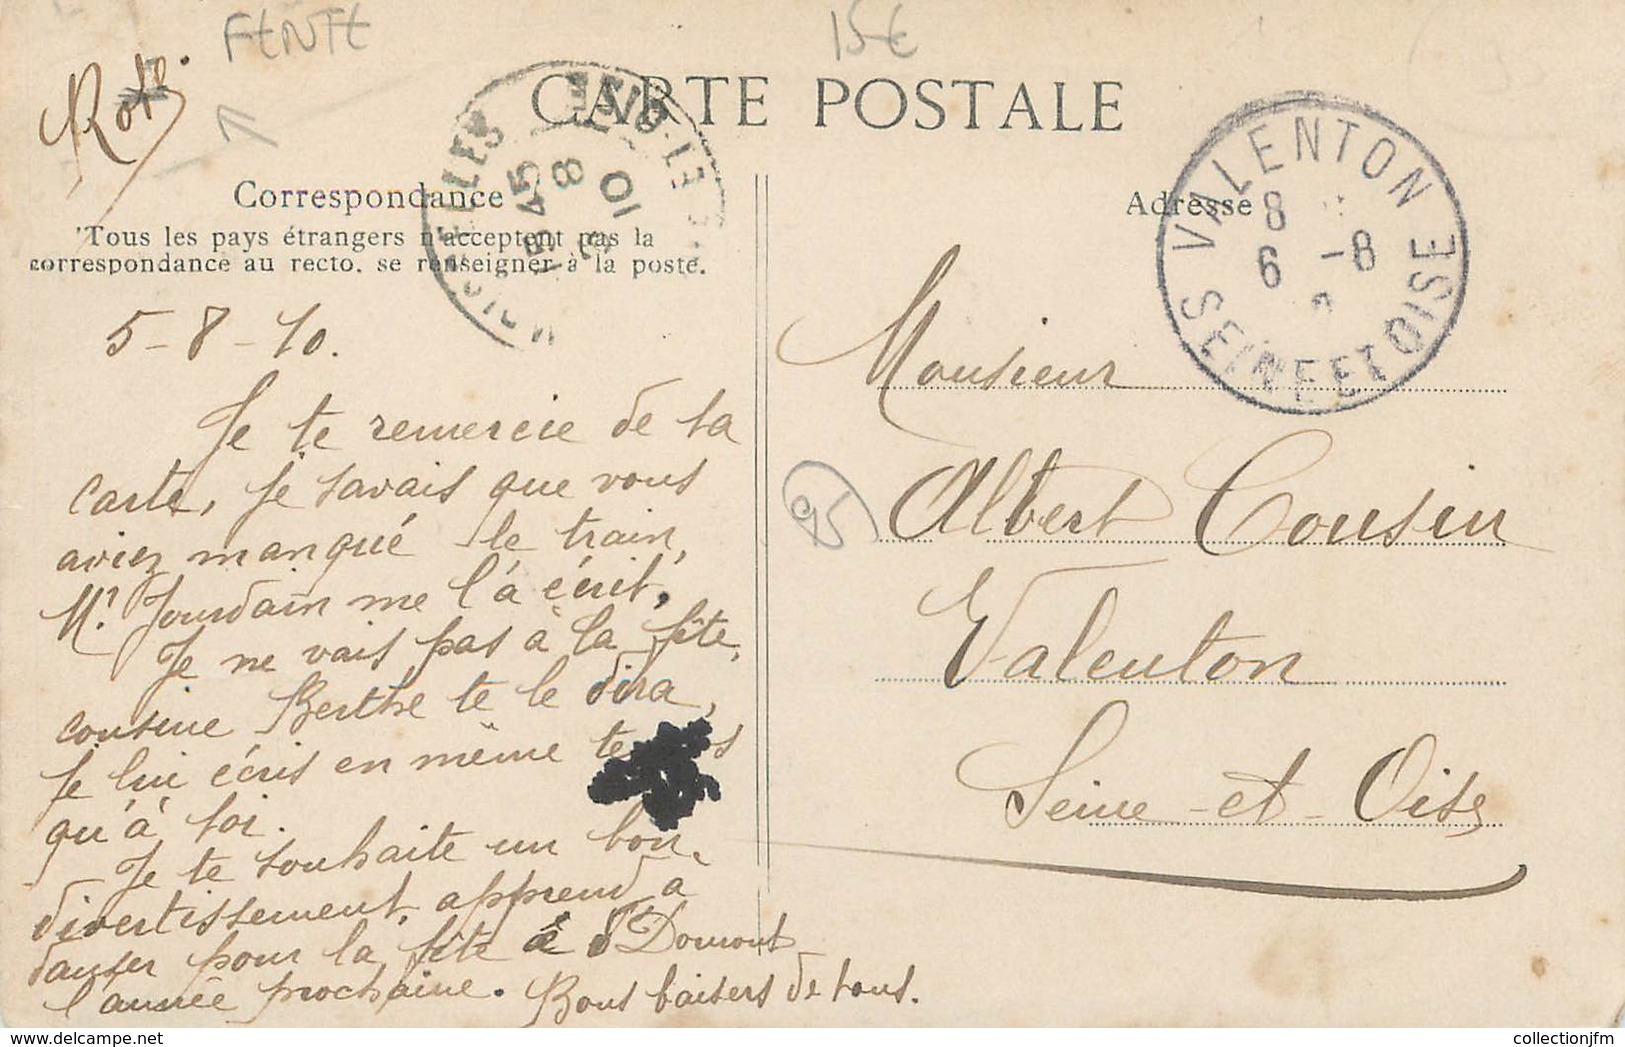 FENTE
15€
CARTE POSTALE
Correspondance
Tous les pays étrangers n'acceptent pas la
correspondance au recto. se renseigner à la poste.
Adresse
VALENTON
8
6 -8
SEINE ET OISE
15 45
8
10
5-8-10.
Je te remercie de ta
carte, je savais que vous
aviez manqué le train,
Mr. Jourdain me l'a écrit,
Je ne vais pas à la fête,
cousine Berthe te le dira,
Je lui écris en même
qu'à toi.
Je te souhaite un bon
divertissement, apprend à
danser pour la fête à Domont
l'année prochaine. Bons baisers de tous.
95
Monsieur
Albert Cousin
Valenton
Seine-et-Oise
collectionjfm